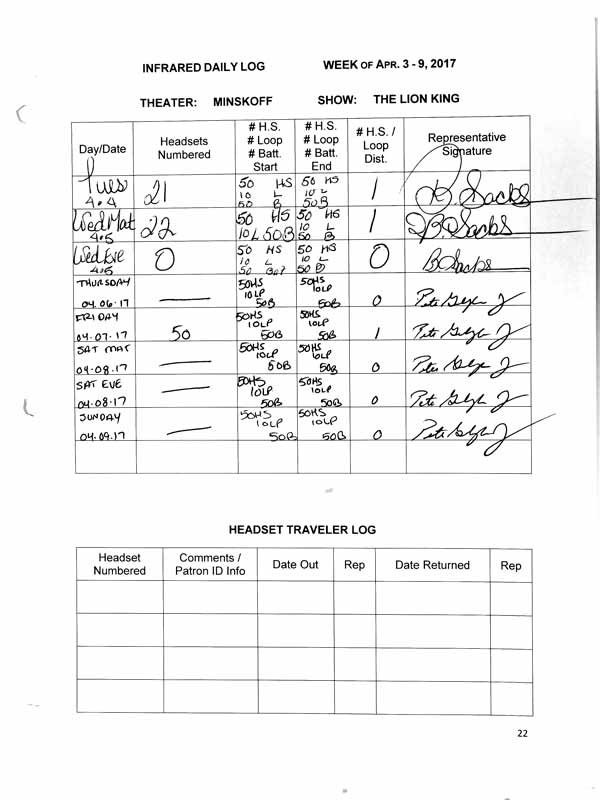 INFRARED DAILY LOG WEEK OF APR. 3 - 9, 2017
THEATER: MINSKOFF SHOW: THE LION KING
Day/Date Headsets Numbered # H.S. # Loop # Batt. Start # H.S. # Loop # Batt. End # H.S. / Loop Dist. Representative Signature
Tues 4.4 21 50 HS 10 L 50 B 50 HS 10 L 50B 1 B. Sacks
Wed Mat 4.5 22 50 HS 10 L 50B 50 HS 10 L 50 B 1 B Sacks
Wed Eve 4.5 0 50 HS 10 L 50 Bat 50 HS 10 L 50 B 0 B Sacks
THURSDAY 04.06.17 — 50HS 10LP 50B 50HS 10LP 50B 0 Pete
FRIDAY 04.07.17 50 50HS 10LP 50B 50HS 10LP 50B 1 Pete
SAT MAT 04.08.17 — 50HS 10LP 50B 50HS 10LP 50B 0 Pete
SAT EVE 04.08.17 — 50HS 10LP 50B 50HS 10LP 50B 0 Pete
SUNDAY 04.09.17 — 50HS 10LP 50B 50HS 10LP 50B 0 Pete
HEADSET TRAVELER LOG
Headset Numbered Comments / Patron ID Info Date Out Rep Date Returned Rep
22